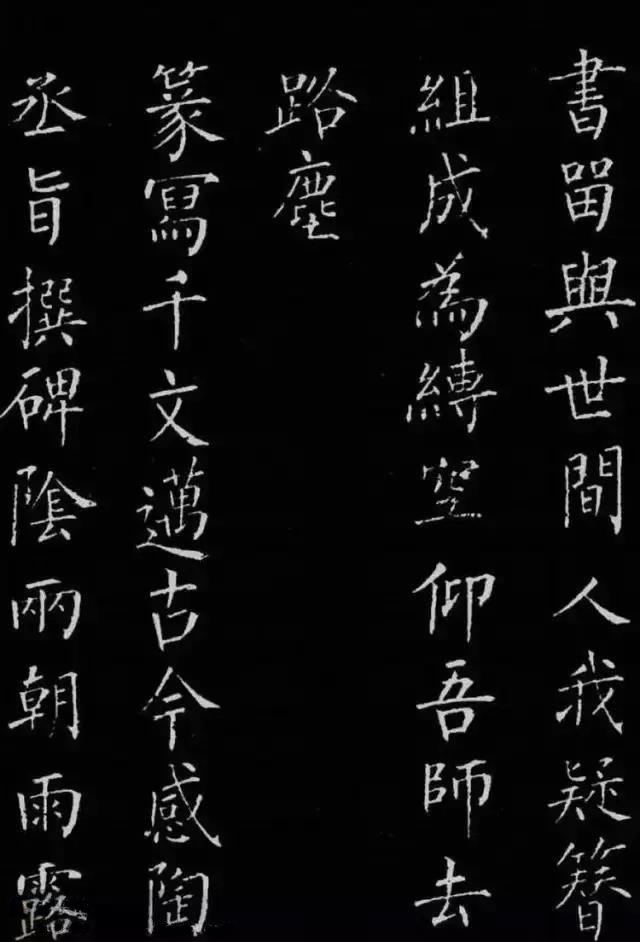 書留與世間人我疑簪
組成為縛空仰吾師去
路塵
篆寫千文邁古今感陶
丞旨撰碑陰兩朝雨露